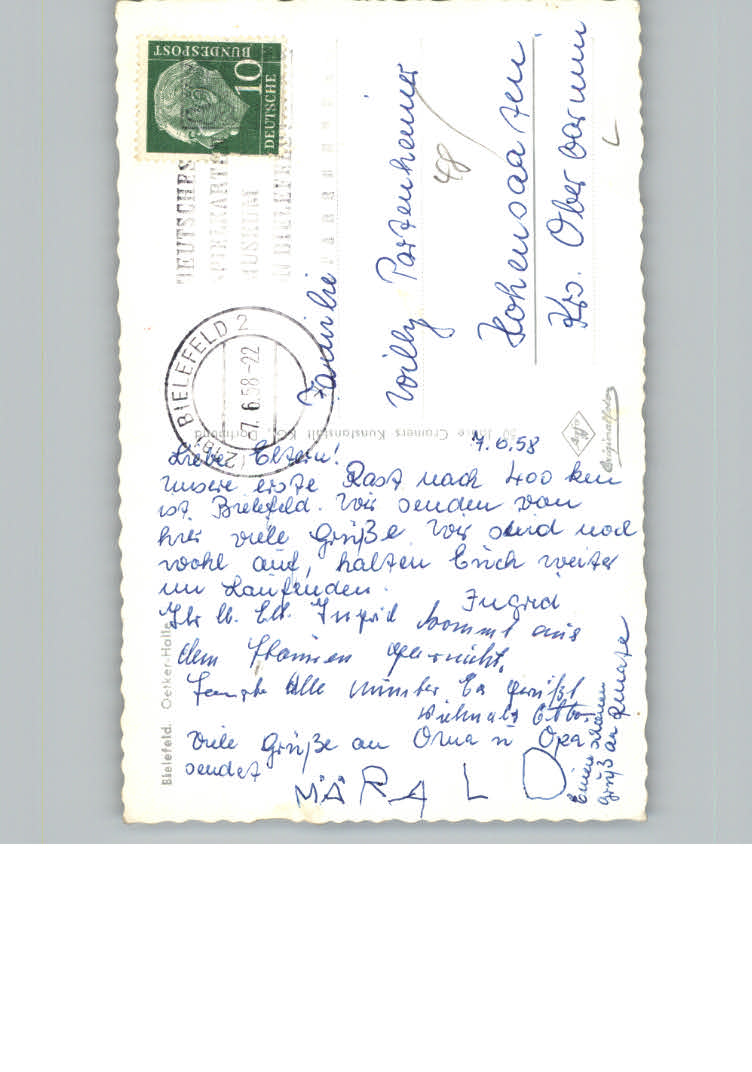 7.6.58
Liebe Eltern!
Unsere erste Rast nach 400 km
ist Bielefeld. Wir senden von
hier viele Grüße. Wir sind noch
wohl auf, halten Euch weiter
im Laufenden.
Ingrid
Ihr lb. Ingrid kommt aus
dem Staunen gar nicht
alle munter. Es grüßt
Viele Grüße an Oma u Opa
sendet
MÄRALD
Einen schönen
Gruß an Renate
Bielefeld. Oetker-Halle
Cramers Kunstanstalt KG., Dortmund
Agfa
Originalfoto
DEUTSCHE
BUNDESPOST
10
DEUTSCHES
SPIELKARTEN
MUSEUM
IN BIELEFELD
BIELEFELD 2
7.6.58-22
Familie
Willy Partenheimer
48
Hohensaaten
Krs. Oberbarnim